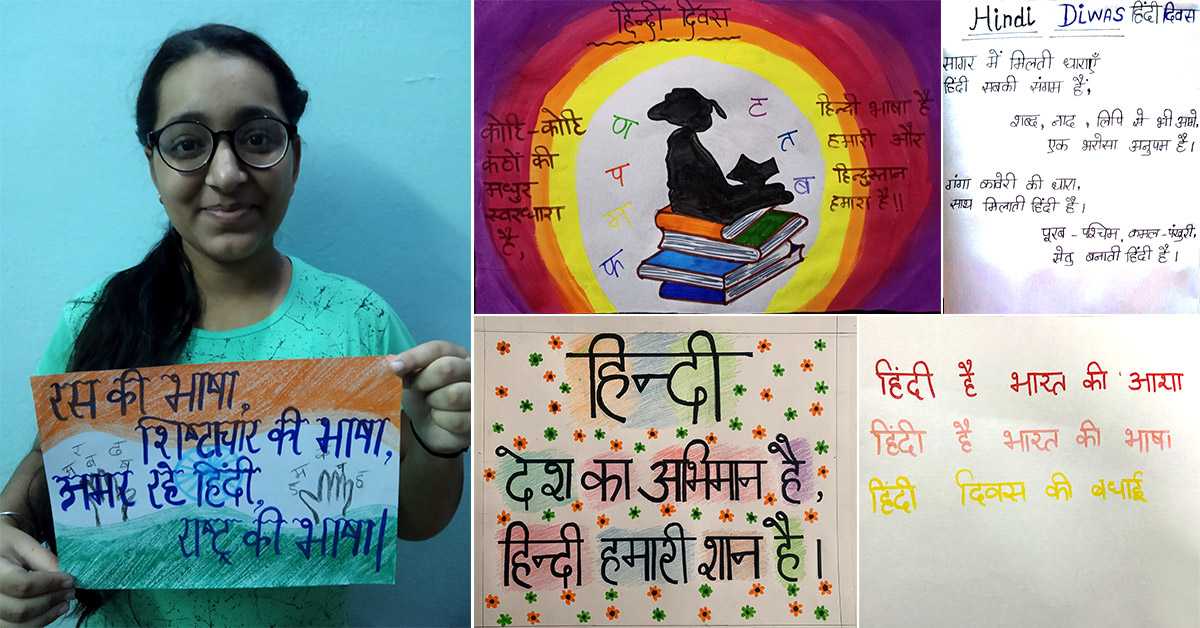 रस की भाषा,
शिष्टाचार की भाषा,
अमर रहे हिंदी,
राष्ट्र की भाषा|
हिन्दी दिवस
कोटि-कोटि
कंठों की
मधुर
स्वरधारा
है,
ण
प
म
फ
ट
त
ब
हिन्दी भाषा है
हमारी और
हिन्दुस्तान
हमारा है!!
Hindi DIWAS हिंदी दिवस
सागर में मिलती धाराएँ
हिंदी सबकी संगम है,
शब्द, नाद, लिपि से भी आगे,
एक भरोसा अनुपम है।
गंगा कावेरी की धारा,
साथ मिलाती हिंदी है।
पूरब - पश्चिम, कमल-पंखुरी,
सेतु बनाती हिंदी है।
हिन्दी
देश का अभिमान है,
हिन्दी हमारी शान है।
हिंदी है भारत की आशा
हिंदी है भारत की भाषा
हिंदी दिवस की बधाई